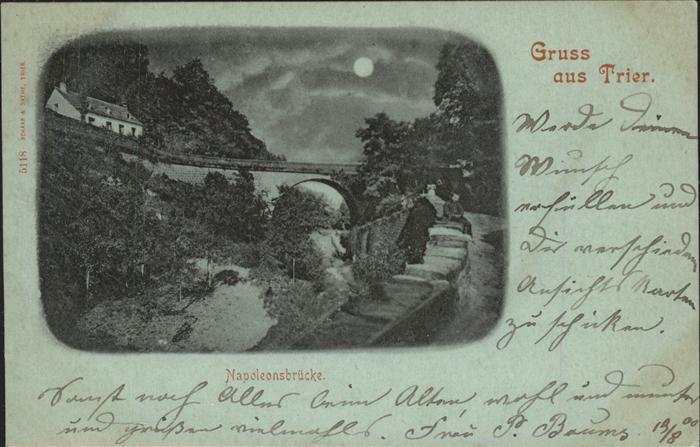 Gruss
aus Trier.
5118 SCHAAR & DATHE, TRIER.
Werde Deinen
Wunsch
erfüllen und
Dir verschieden
Ansichts Karten
zu schicken.
Napoleonsbrücke.
Sonst noch Alles beim Alten, wohl und munter
und grüßen vielmahls. Frau P Baums 19/8